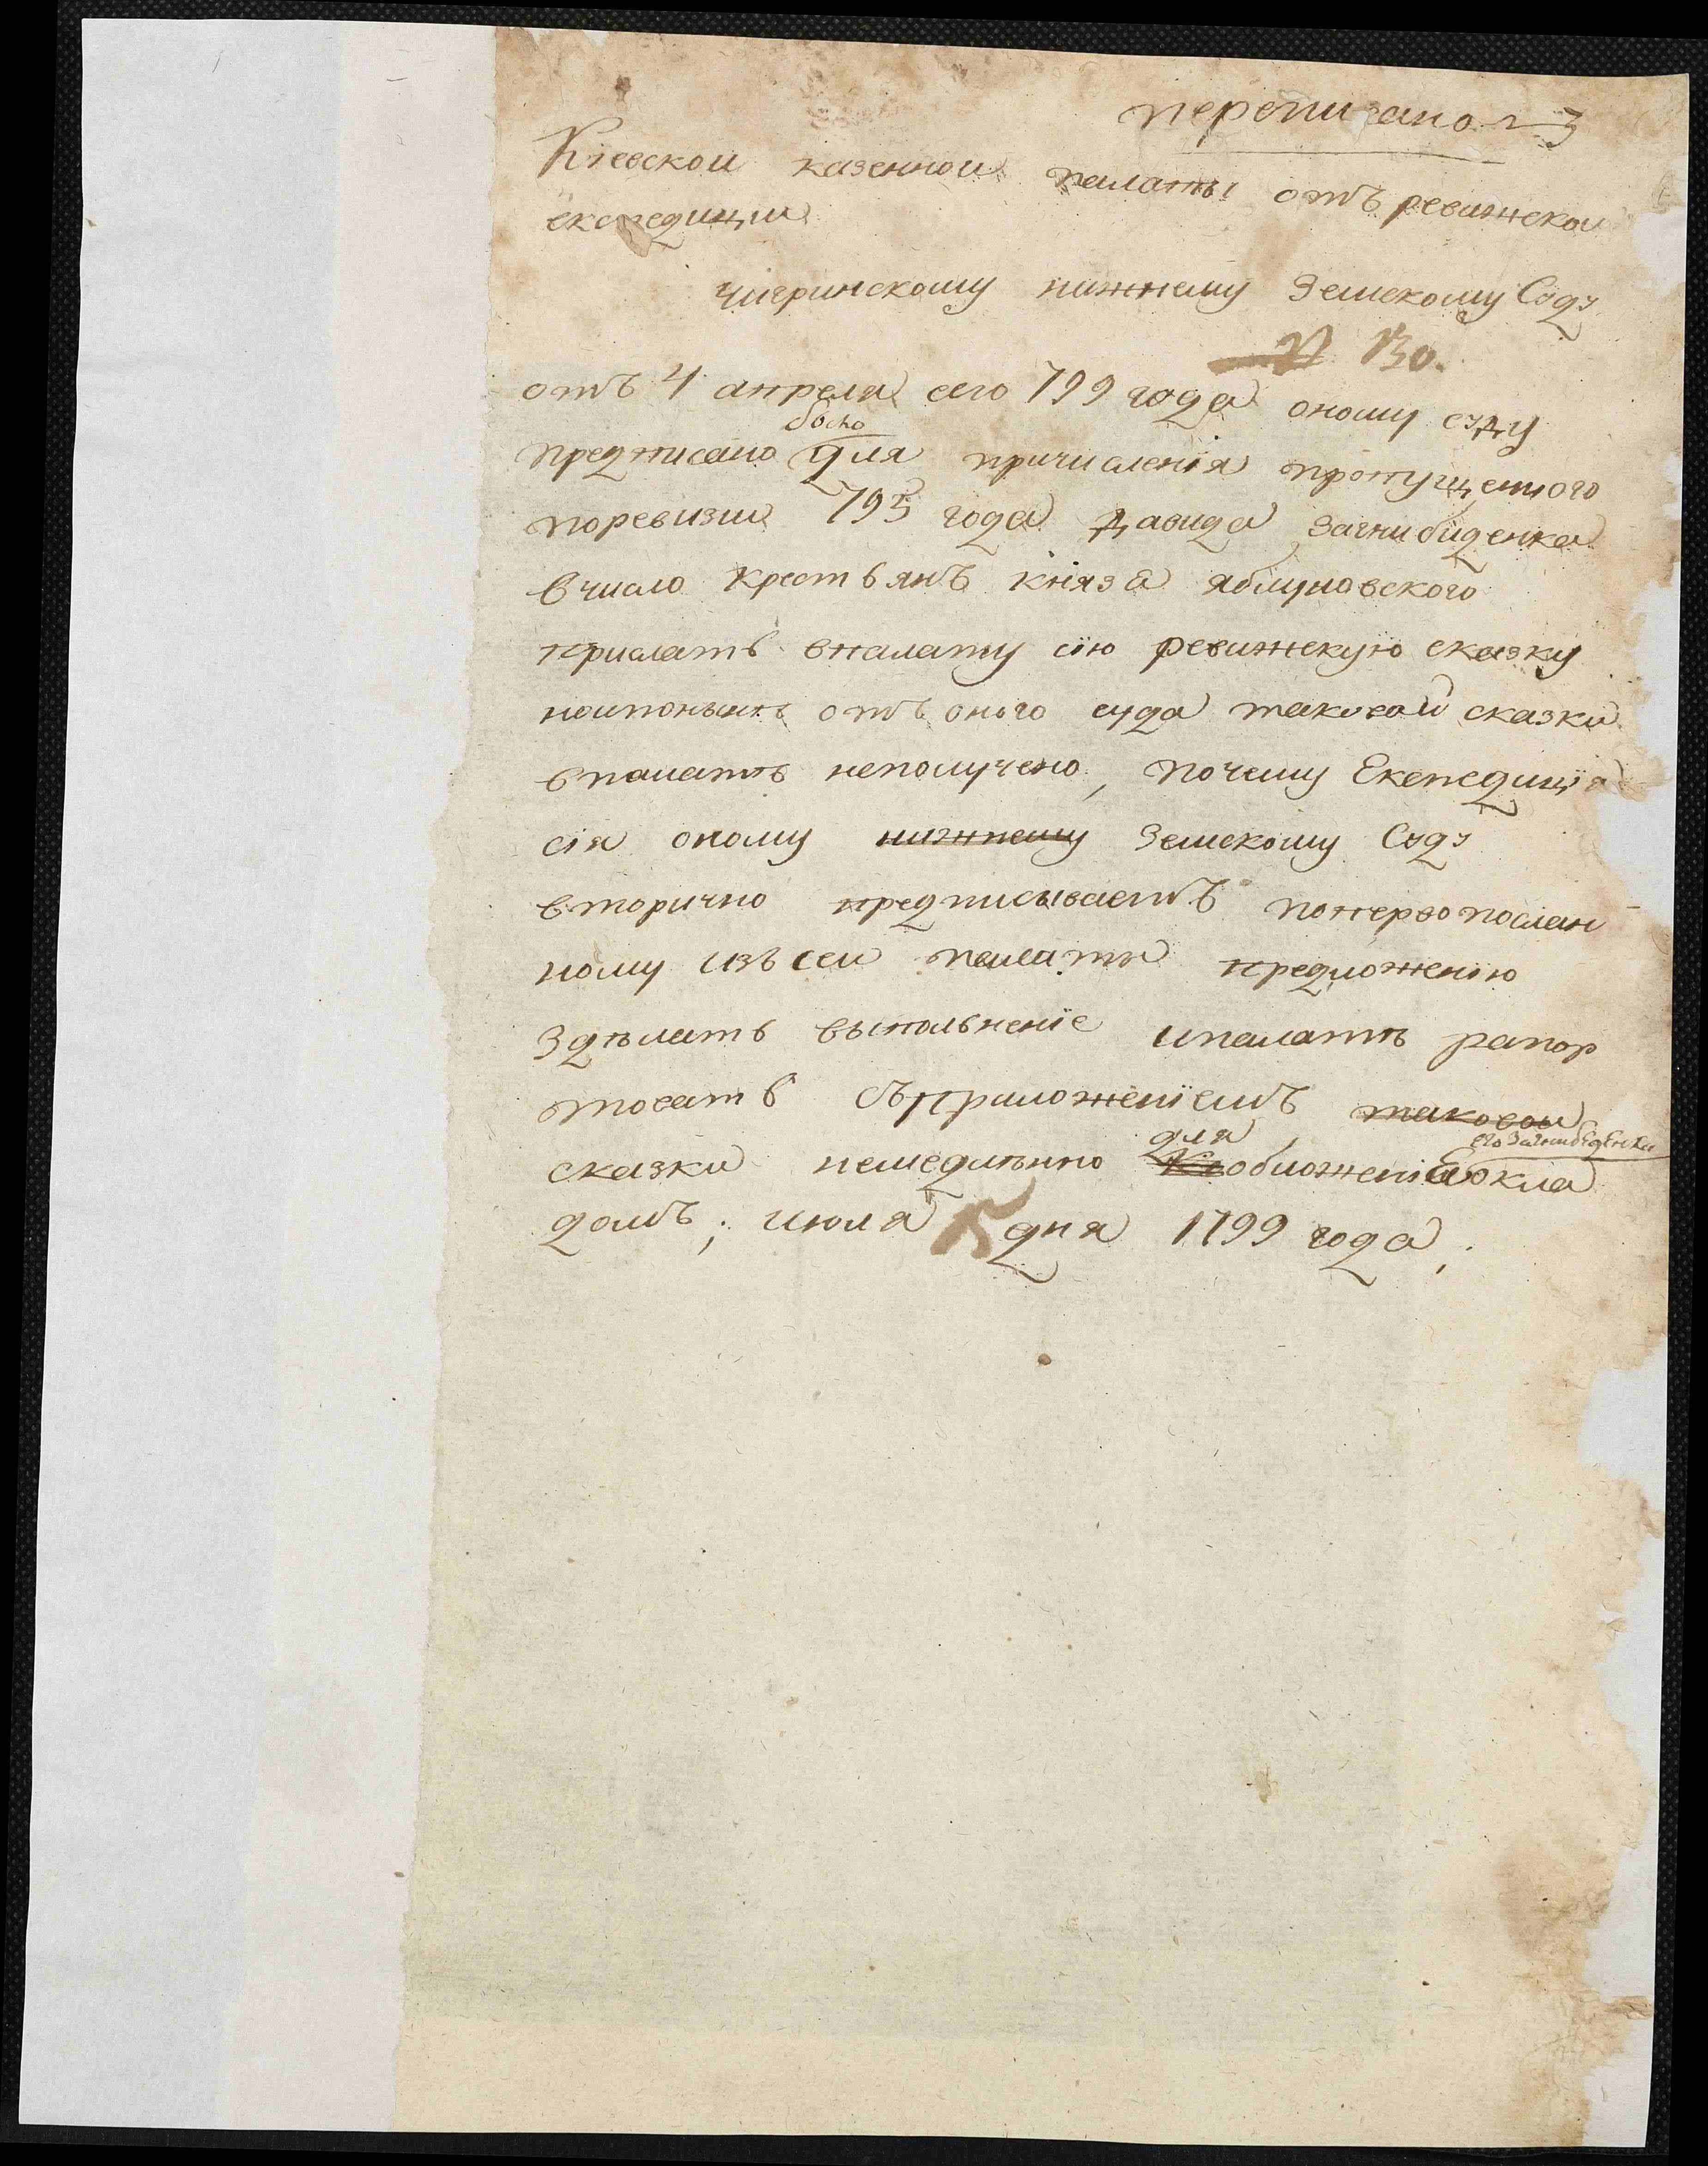 переписано
Кіевской казенной палаты отъ ревижской
експедиции
чигринскому нижнему Земскому Суду
N 130.
отъ 4 апреля сего 799 года оному суду
было
предписано для причисленія пропущенного
поревизии 795 года Давида Загнибиденка
вчисло крестьянъ князя яблуновского
прислать впалату сію ревижскую сказку
ноипонынѣ отъ оного суда таковой сказки
впалатѣ неполучено, почему Експедиція
сія оному нижнему Земскому Суду
вторично предписываетъ поперво послан
ному изъ сей палаты предложенію
здѣлать выпольненіе ипалатѣ рапор
товать съприложеніемъ таковой
для его Загнибеденка
сказки немедлѣнно обложенія окла
домъ, июля дня 1799 года,